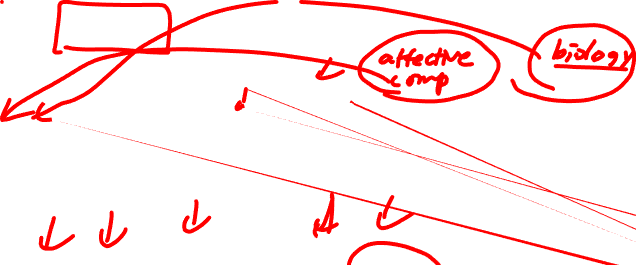 affective
comp
biology